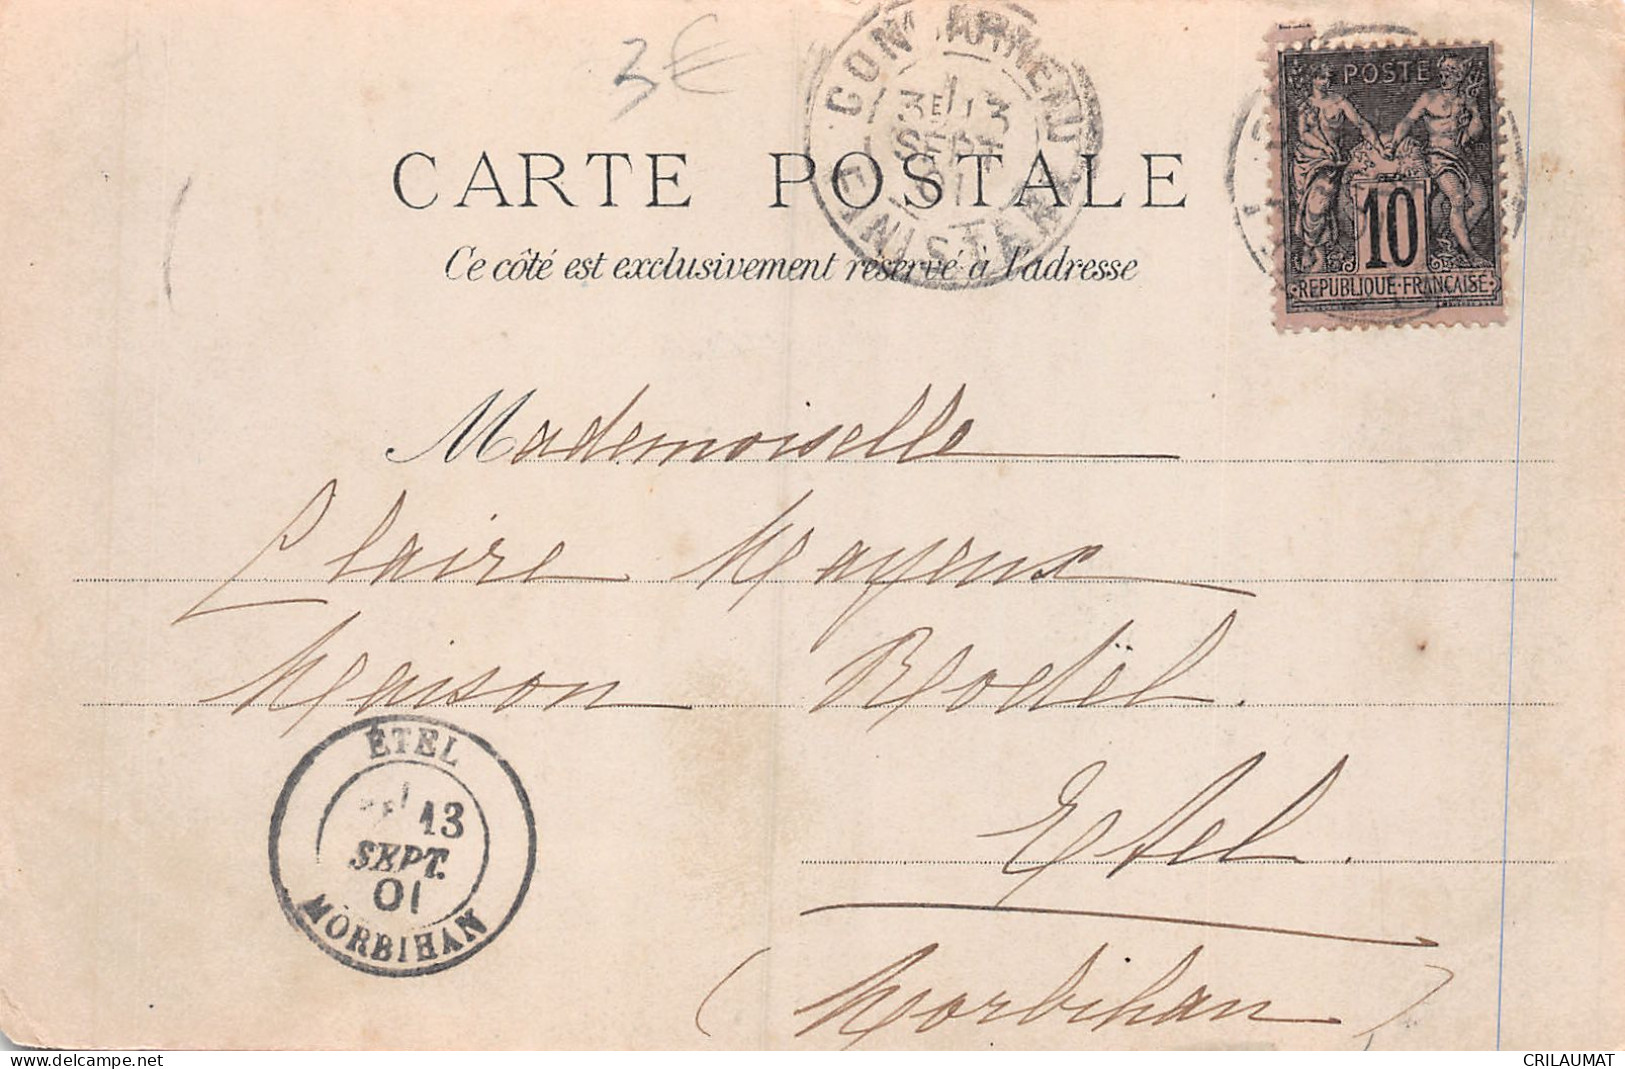 3€
CONCARNEAU
3E 13
SEPT
01
FINISTERE
POSTE
10
REPUBLIQUE FRANÇAISE
CARTE POSTALE
Ce côté est exclusivement réservé à l'adresse
Mademoiselle
Claire Mayeux
Maison Rodël.
ÉTEL
13
SEPT.
01
MORBIHAN
Etel.
(Morbihan)
https://www.delcampe.net
CRILAUMAT